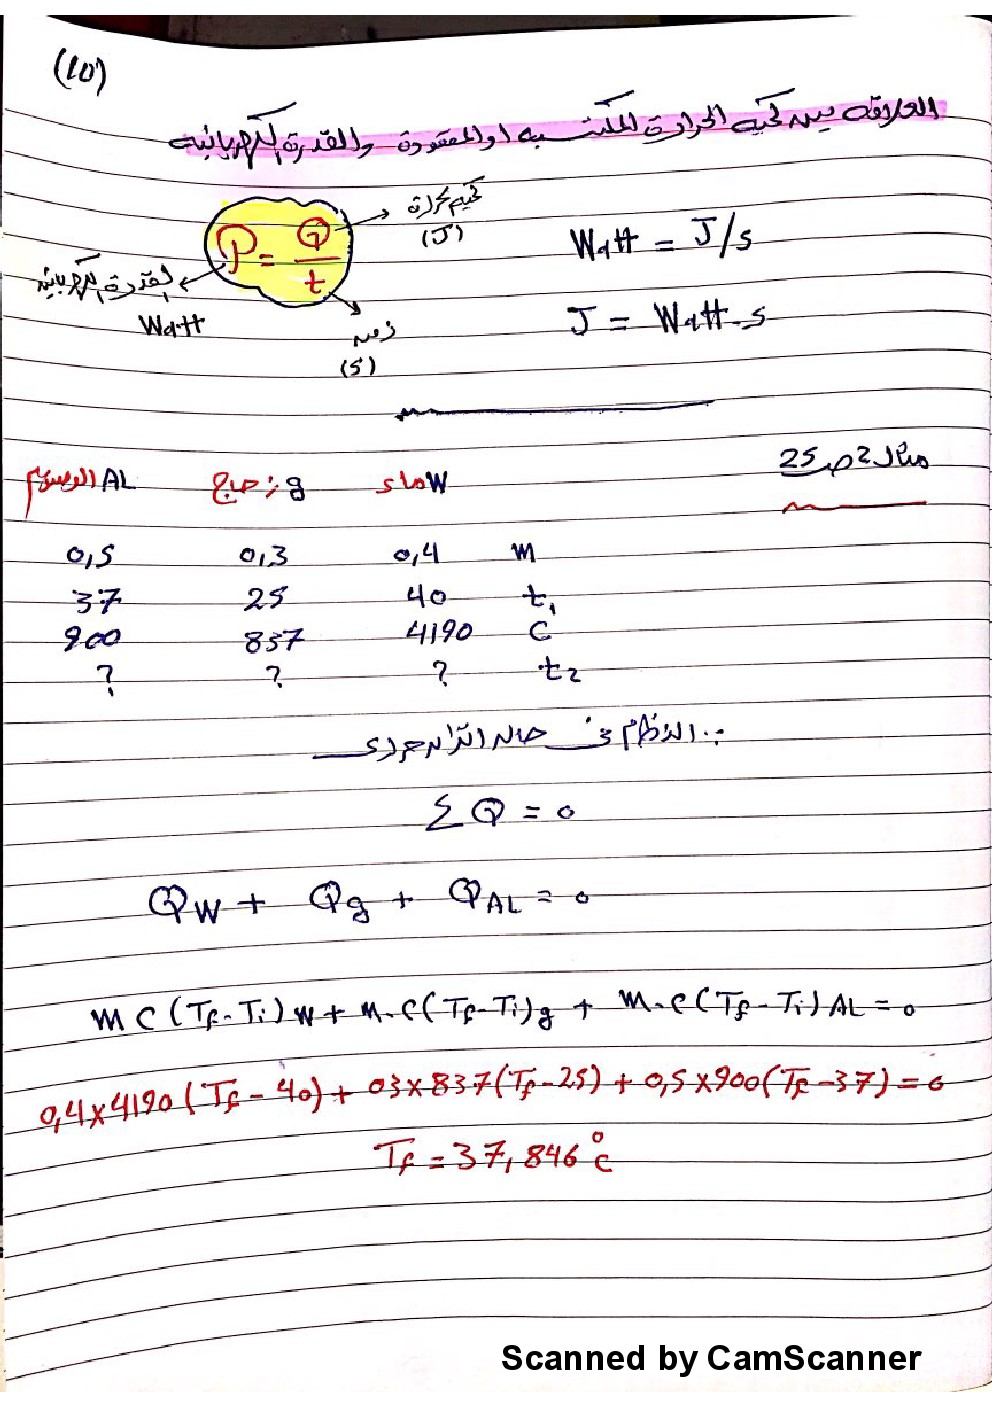 (10)
العلاقة بين كمية الحرارة المكتسبة او المفقودة والقدرة الكهربائية
P = Q / t
كمية حرارة
(J)
القدرة الكهربائية
Watt
زمن
(s)
Watt = J/s
J = Watt.s
مثال 2 ص 25
ماء W زجاج g الومنيوم AL
m 0,4 0,3 0,5
t₁ 40 25 37
C 4190 837 900
t₂ ? ? ?
∵ النظام في حاله اتزان حراري
Σ Q = 0
QW + Qg + QAL = 0
m c (Tf - Ti) W + m.c (Tf - Ti) g + m.c (Tf - Ti) AL = 0
0,4 x 4190 (Tf - 40) + 03 x 837 (Tf - 25) + 0,5 x 900 (Tf - 37) = 0
Tf = 37,846 °c
Scanned by CamScanner